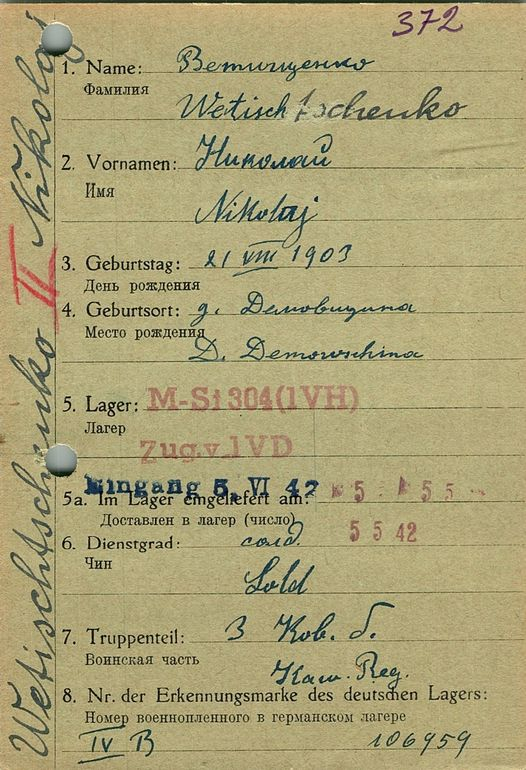 372
1. Name: Ветищенко
Фамилия
Wetischtschenko
2. Vornamen: Николай
Имя
Nikolaj
3. Geburtstag: 21 VIII 1903
День рождения
4. Geburtsort: д.
Место рождения
D.
5. Lager: M-St 304 (IVH)
Лагерь
Zug. v. IVD
Eingang 5. VI 42
5a. Im Lager eingeliefert am: 5
Доставлен в лагерь (число)
5 5 42
6. Dienstgrad: солд.
Чин
Sold
7. Truppenteil: 3 Кав.
Воинская часть
Kaw. Reg.
8. Nr. der Erkennungsmarke des deutschen Lagers:
Номер военнопленного в германском лагере
IV B 106959
Wetischtschenko II Nikolaj